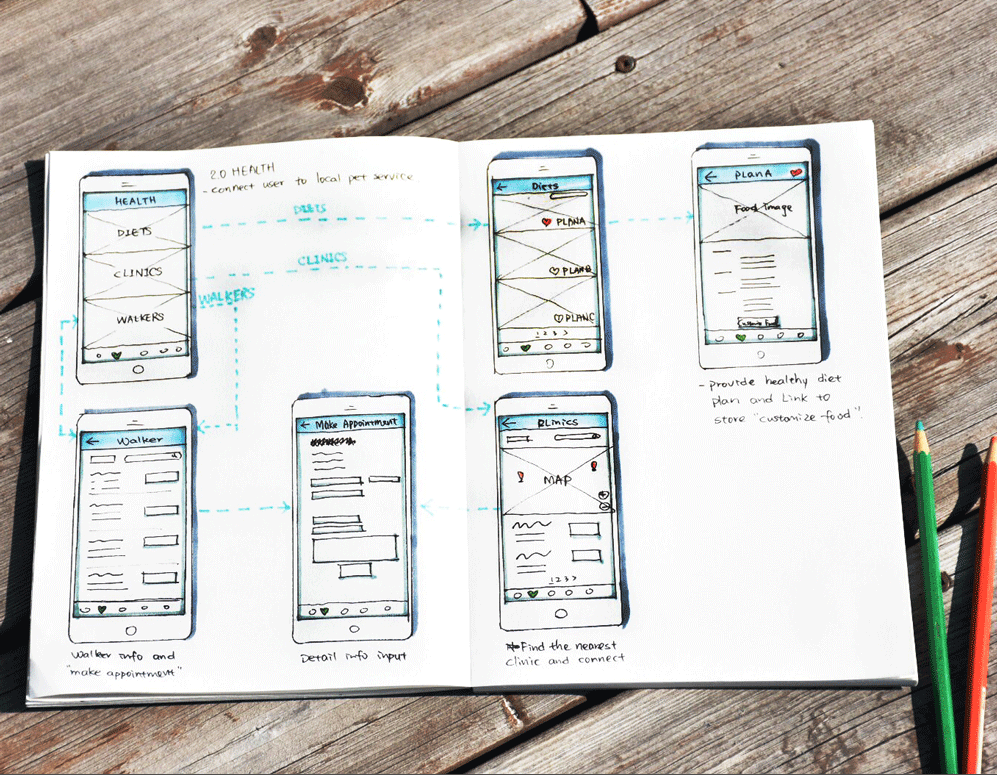 2.0 HEALTH
- connect user to local pet service
HEALTH
DIETS
CLINICS
WALKERS
DIETS
CLINICS
WALKERS
Diets
PLANA
PLANB
PLANC
1 2 3 >
PLANA
Food Image
- provide healthy diet
plan and Link to
store "customize food".
Walker
Walker info and
"make appointment"
Make Appointment
Detail info input
MAP
1 2 3 >
Find the nearest
clinic and connect